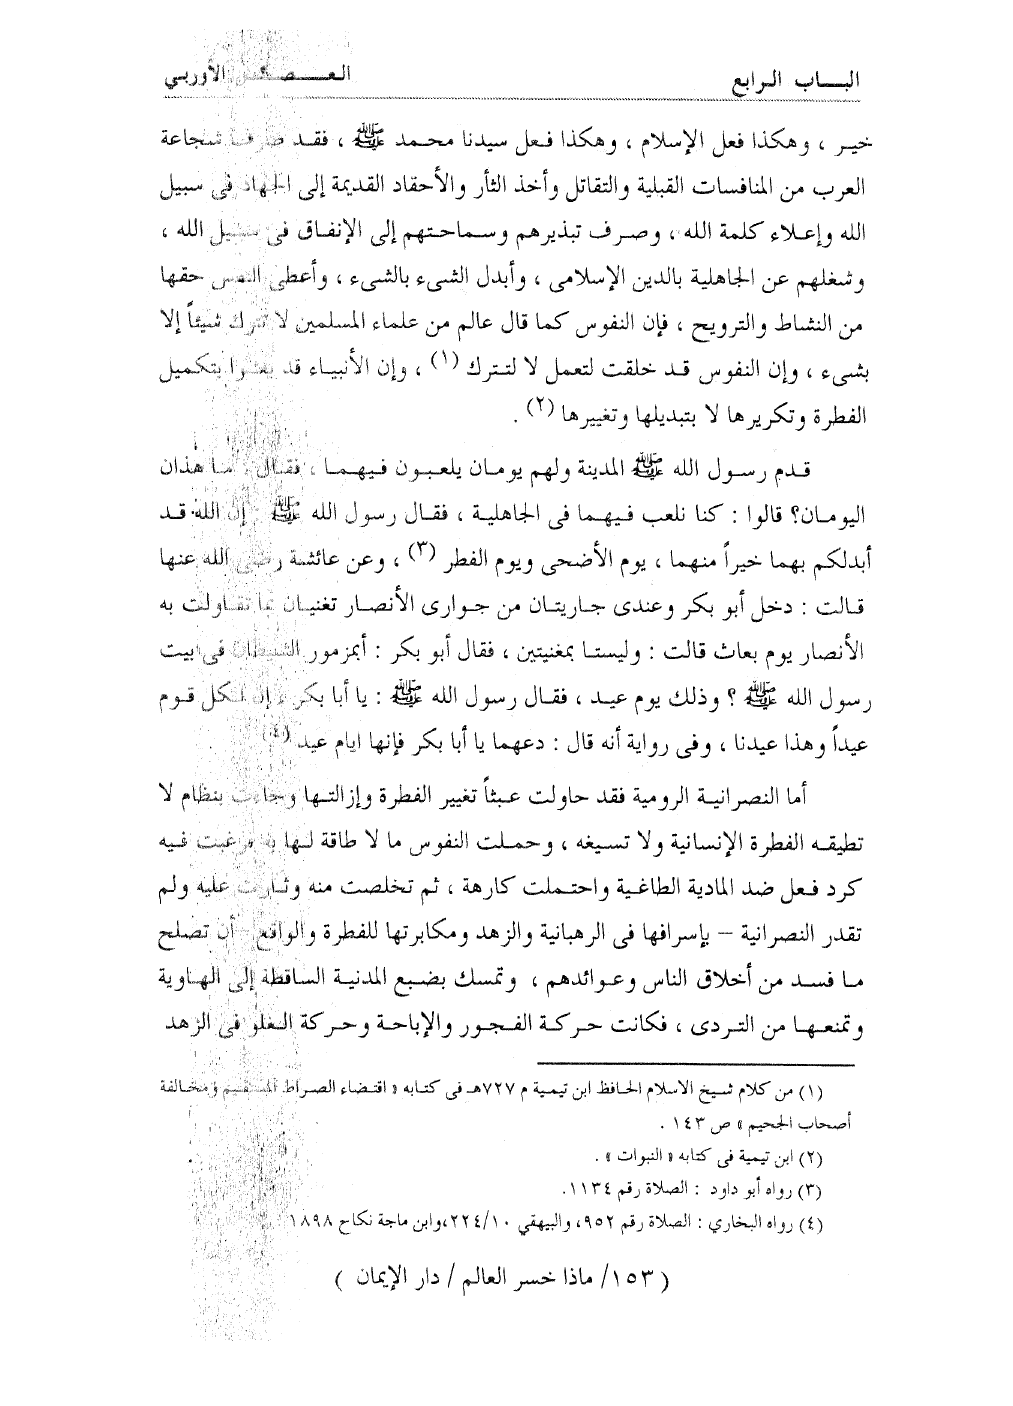 البـــاب الرابع
العـصـر الأوربي
خيـر ، وهكذا فعل الإسلام ، وهكذا فـعل سيدنا محـمد ﷺ ، فقـد صرف شجاعة
العرب من المنافسات القبلية والتقاتل وأخذ الثأر والأحقاد القديمة إلى الجهاد فى سبيل
الله وإعـلاء كلمة الله ، وصـرف تبذيرهم وسـماحـتهم إلى الإنفـاق فى سبيل الله ،
وشغلهم عن الجاهلية بالدين الإسلامى ، وأبدل الشىء بالشىء ، وأعطى النفس حقها
من النشاط والترويح ، فإن النفوس كما قال عالم من علماء المسلمين لا تترك شيئاً إلا
بشىء ، وإن النفوس قـد خلقت لتعمل لا لتترك (١) ، وإن الأنبيـاء قد بعثوا بتكميل
الفطرة وتكريرها لا بتبديلها وتغييرها (٢) .
قـدم رسـول الله ﷺ المدينة ولهم يومـان يلعبـون فيـهمـا ، فقـال : مـا هذان
اليومـان؟ قالوا : كنا نلعب فيـهما فى الجاهليـة ، فقـال رسـول الله ﷺ : إن الله قـد
أبدلكم بهما خيراً منهما ، يوم الأضحى ويوم الفطر (٣) ، وعن عائشة رضى الله عنها
قـالت : دخل أبو بكر وعندى جاريتان من جـوارى الأنصار تغنيـان بما تقـاولت به
الأنصار يوم بعاث قالت : وليستـا بمغنيتين ، فقال أبو بكر : أبمزمور الشيطان فى بيت
رسول الله ﷺ ؟ وذلك يوم عيـد ، فقـال رسول الله ﷺ : يا أبا بكر ، إن لكل قـوم
عيداً وهذا عيدنا ، وفى رواية أنه قال : دعهما يا أبا بكر فإنها ايام عيد (٤) .
أما النصرانيـة الرومية فقد حاولت عبـثاً تغيير الفطرة وإزالتـها وجاءت بنظام لا
تطيقـه الفطرة الإنسانية ولا تسيغه ، وحـملت النفوس ما لا طاقة لـها به فرغبت فيه
كرد فـعل ضد المادية الطاغـية واحتملت كارهة ، ثم تخلصت منه وثـارت عليه ولم
تقدر النصرانية – بإسرافها فى الرهبانية والزهد ومكابرتها للفطرة والواقع – أن تصلح
مـا فسـد من أخلاق الناس وعـوائدهم ، وتمسك بضبع المدنيـة الساقطة إلى الهـاوية
وتمنعـهـا من التردى ، فكانت حـركـة الفـجور والإباحـة وحركة الغلو فى الزهد
(١) من كلام شـيخ الاسلام الحـافظ ابن تيمـية م ٧٢٧هـ فى كتـابه « اقتـضاء الصـراط المستقيم ومخـالفة
أصحاب الجحيم » ص ١٤٣ .
(٢) ابن تيمية فى كتابه « النبوات » .
(٣) رواه أبو داود : الصلاة رقم ١١٣٤.
(٤) رواه البخاري : الصلاة رقم ٩٥٢، والبيهقي ٢٢٤/١٠،وابن ماجة نكاح ١٨٩٨
( ١٥٣/ ماذا خسر العالم / دار الإيمان )